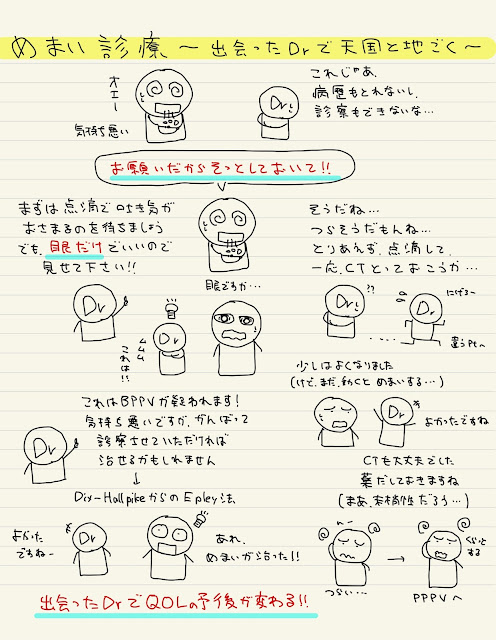 めまい診療 ～出会ったDrで天国と地ごく～
オエー
気持ち悪い
Dr
これじゃあ、
病歴もとれないし、
診察もできないな…
お願いだからそっとしておいて!!
まずは点滴で吐き気が
おさまるのを待ちましょう
でも、眼だけでいいので
見せて下さい!!
眼ですか…
Dr
Dr
ムムム
これは!!
これはBPPVが疑われます!
気持ち悪いですが、がんばって
診察させていただければ
治せるかもしれません
Dr
↓
Dix-HallpikeからのEpley法
よかった
ですねー
Dr
あれ、
めまいが治った!!
そうだね…
つらそうだもんね…
とりあえず、点滴して、
一応、CTとっておこうか…
??
Dr
Dr
にげろー
違うPtへ
少しはよくなりました
(けど、まだ、動くとめまいする…)
Dr
よかったですね
CTも大丈夫でした
薬だしておきますね
(まあ、末梢性だろう…)
つらい…
→
ぐらっとする
PPPVへ
出会ったDrでQOLの予後が変わる!!